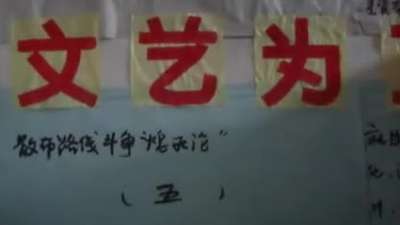 文艺为
散布路线斗争“熄灭论”
（五）